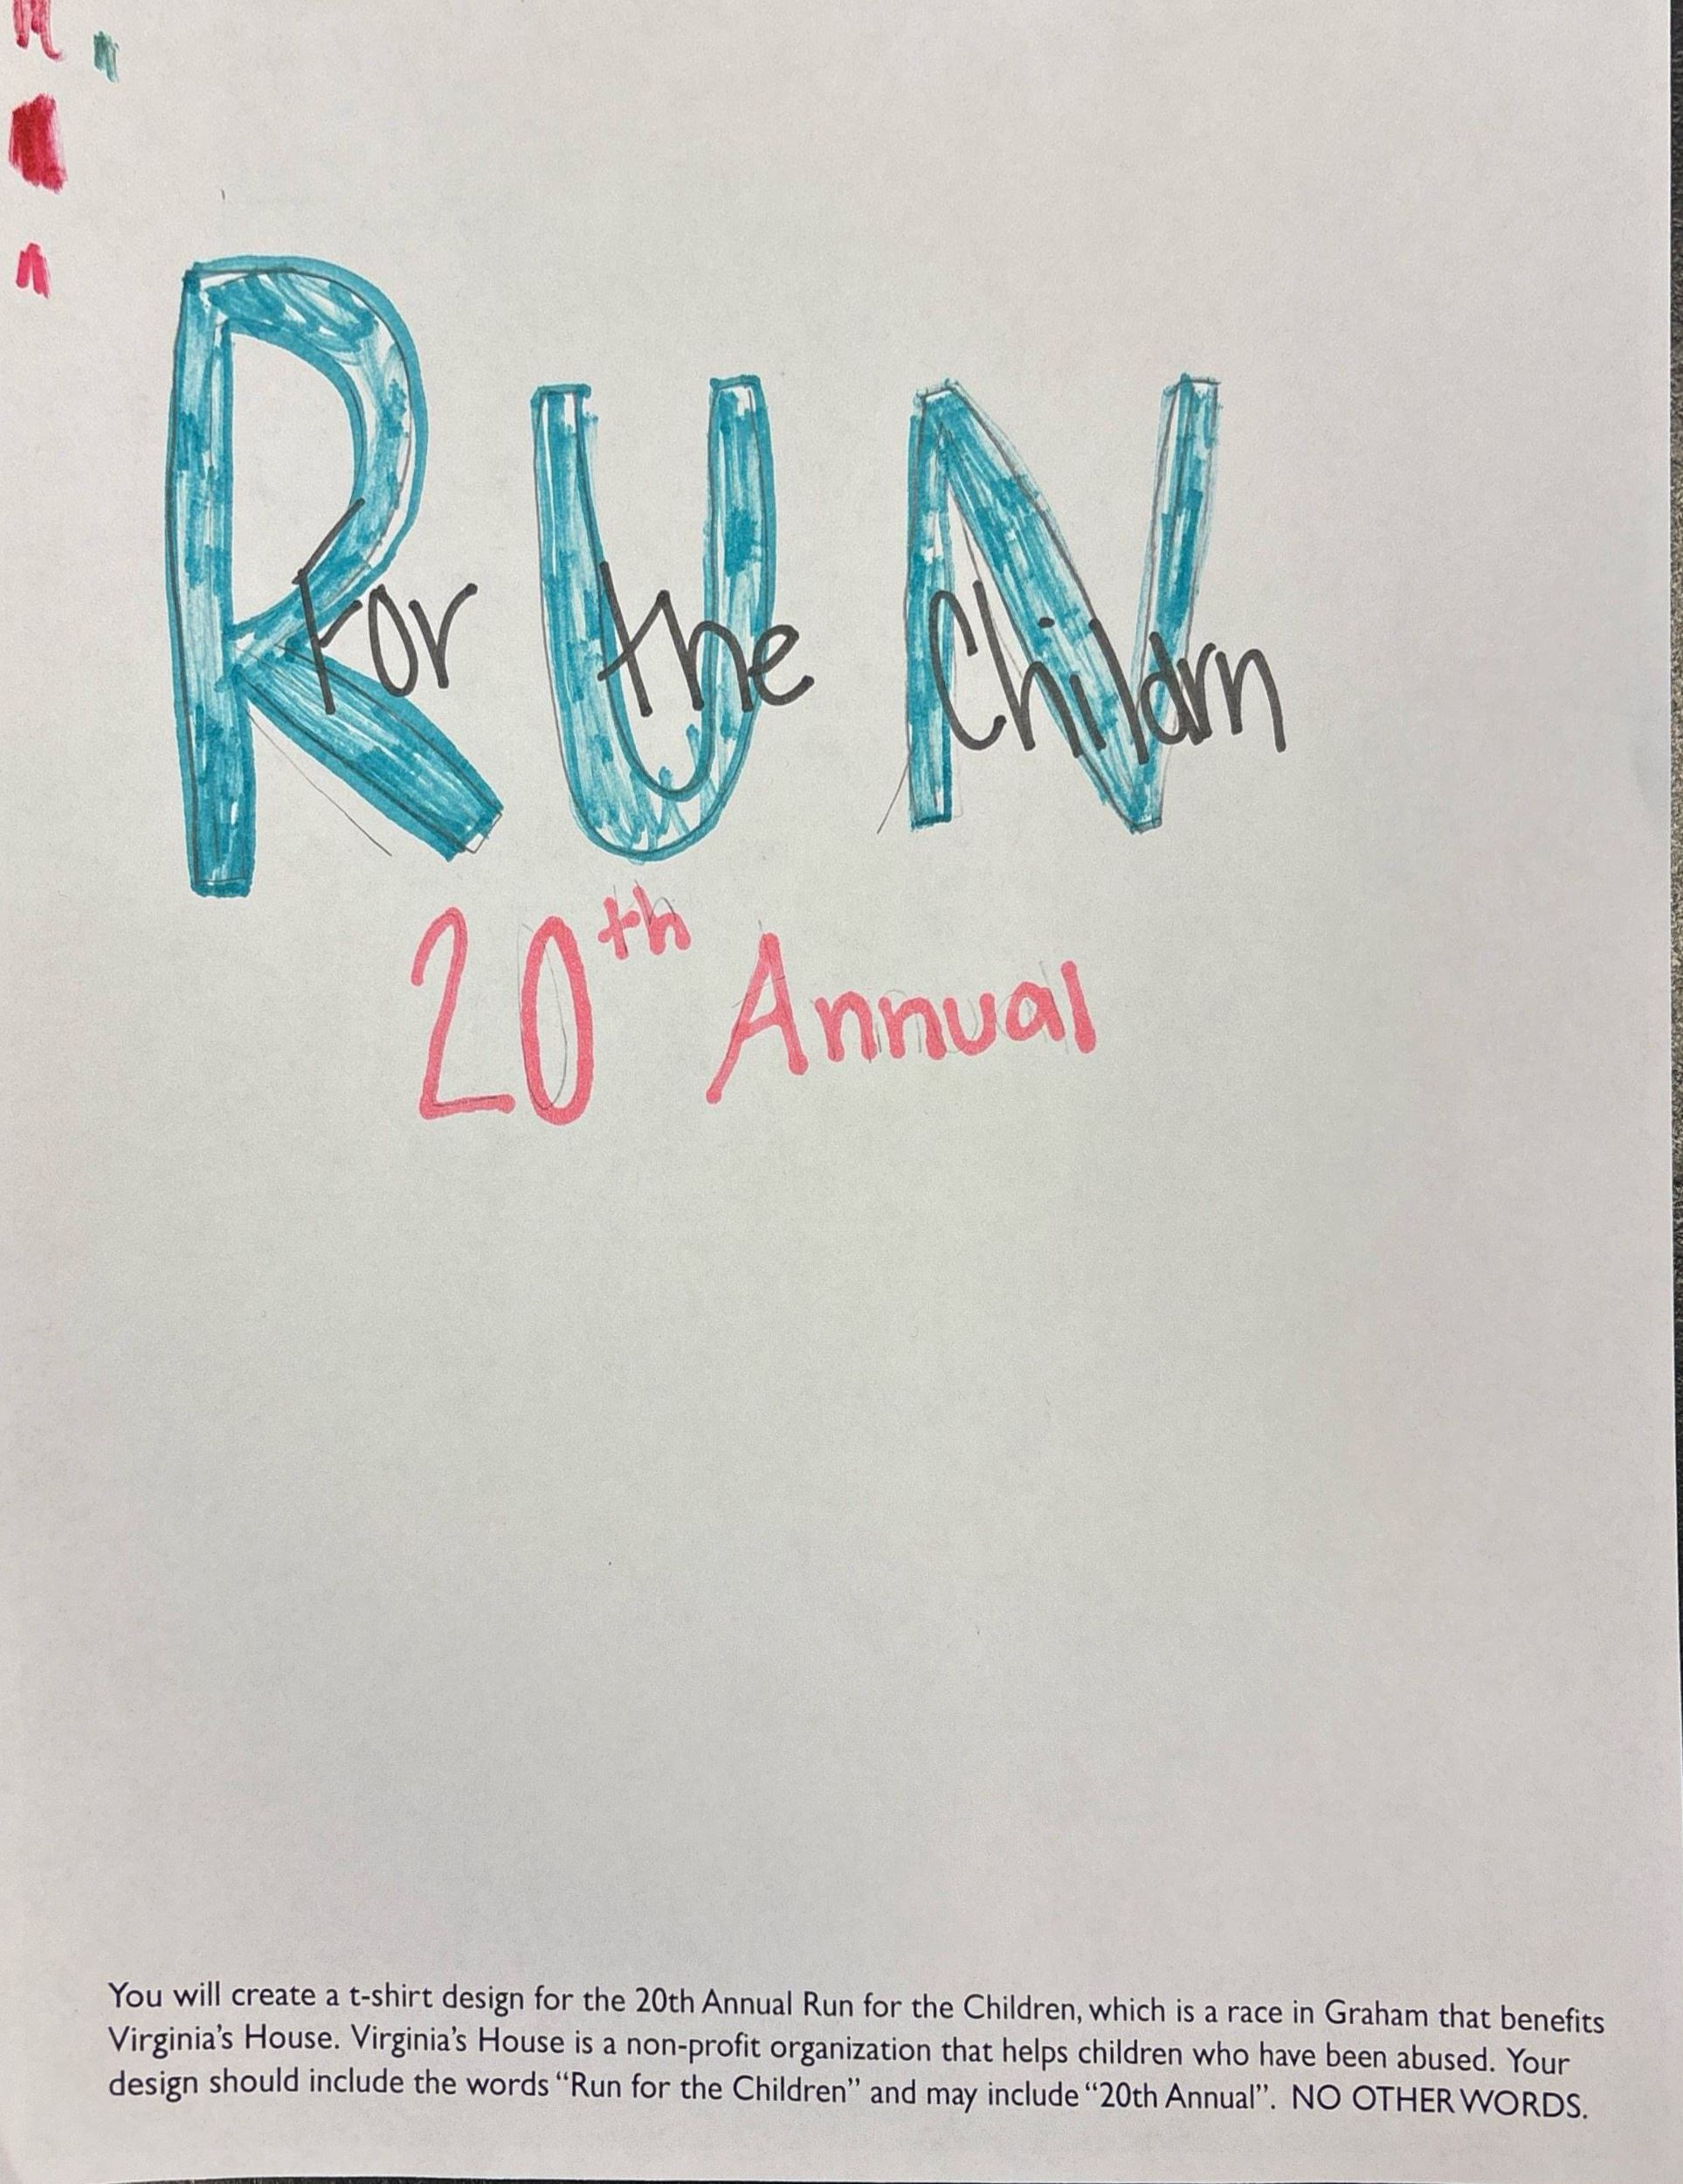 RUN
For the Childrn
20th Annual
You will create a t-shirt design for the 20th Annual Run for the Children, which is a race in Graham that benefits
Virginia's House. Virginia's House is a non-profit organization that helps children who have been abused. Your
design should include the words “Run for the Children” and may include “20th Annual”. NO OTHER WORDS.